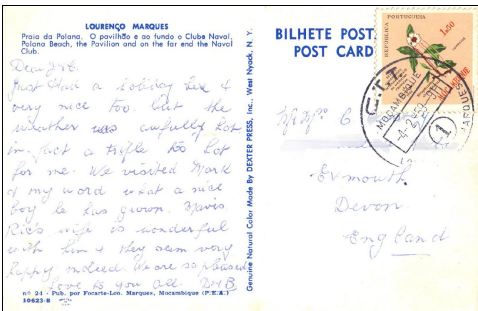 LOURENÇO MARQUES
Praia da Polana. O pavilhão e ao fundo o Clube Naval.
Polana Beach, the Pavilion and on the far end the Naval
Club.
Just had a holiday here &
very nice too. But the
weather was awfully hot
in fact a trifle too hot
for me. We visited Mark
& my word what a nice
boy he has grown. Mavis
Ric's wife is wonderful
with him & they seem very
happy indeed. We are so pleased
Love to you all
nº 24 - Pub. por Focarte-Leo. Marques, Mocambique (P.E.A.)
10623-B
Genuine Natural Color Made By DEXTER PRESS, Inc., West Nyack, N. Y.
BILHETE POST
POST CARD
REPÚBLICA PORTUGUESA
1$50
MOÇAMBIQUE
C.T.T.
MOÇAMBIQUE
1
Exmouth.
Devon.
England